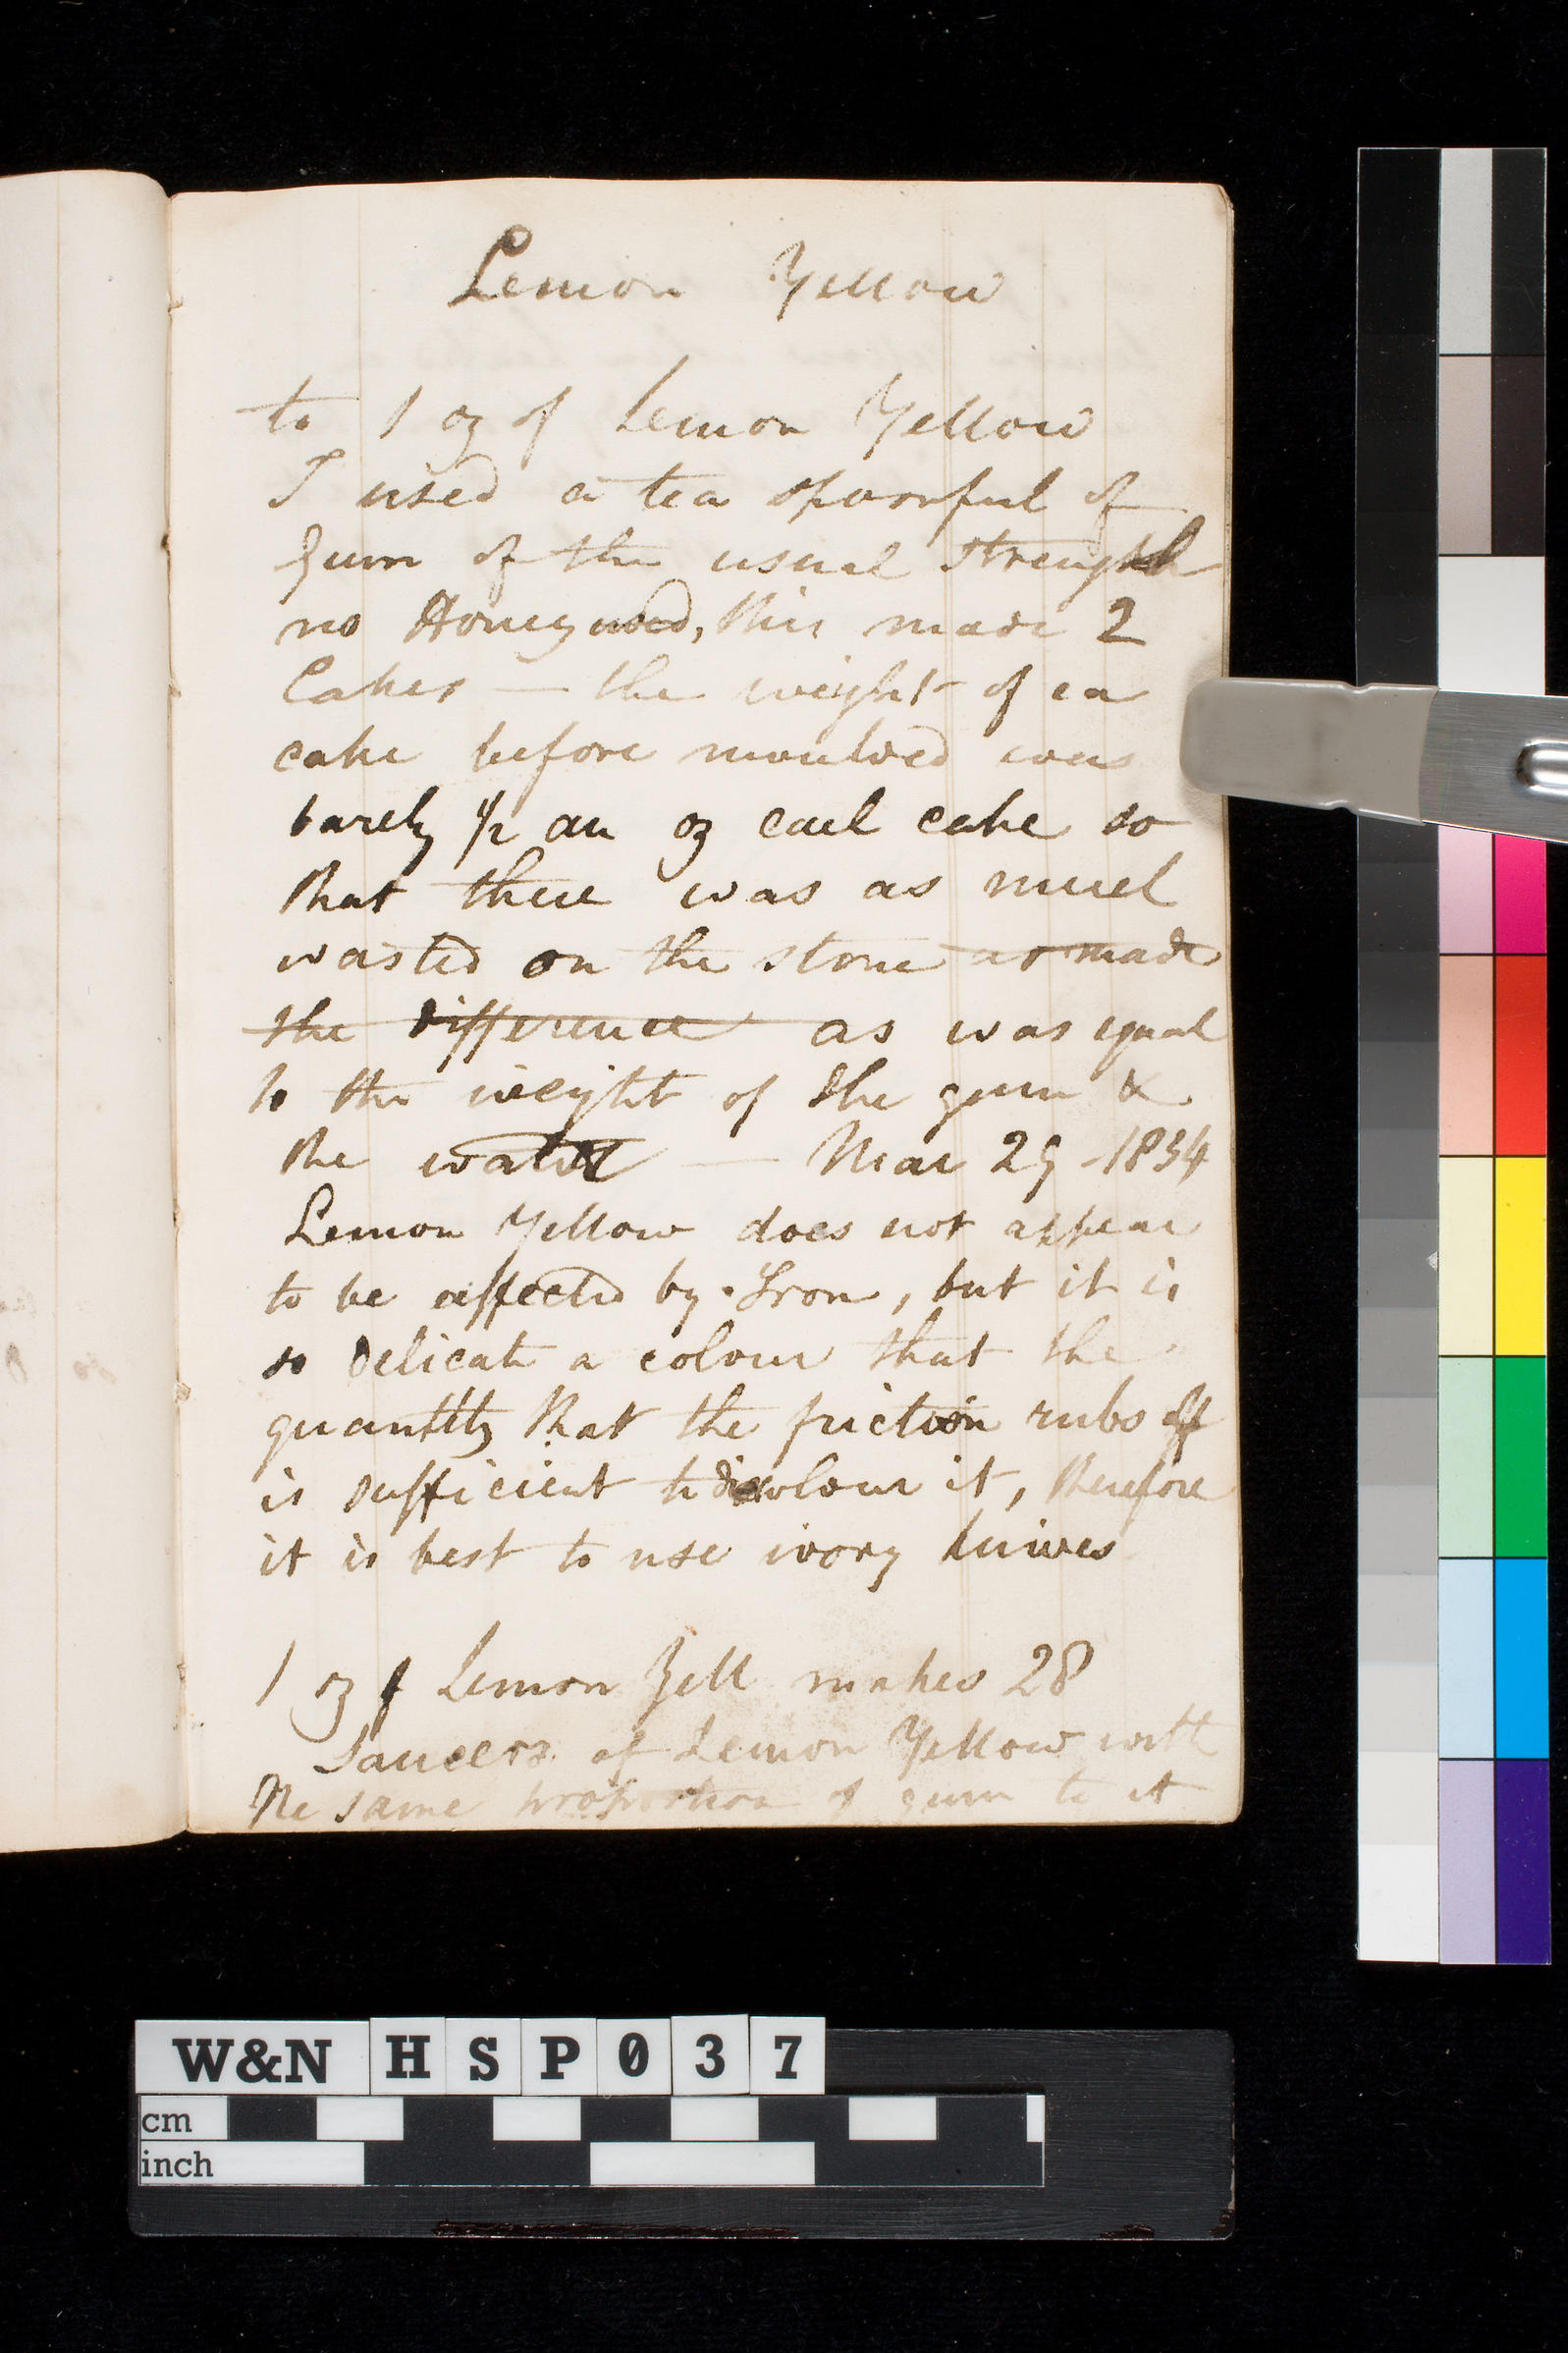 Lemon Yellow
to 1 oz of Lemon Yellow
I used a tea spoonful of
Gum of the usual strength
no Honey used, this made 2
Cakes — the weight of ea
cake before moulded was
barely 1/2 an oz each cake so
that there was as much
wasted on the stone as made
the difference as was equal
to the weight of the gum &
the water — Mar 29 - 1834
Lemon Yellow does not appear
to be affected by Iron, but it is
so delicate a colour that the
quantity that the friction rubs off
is sufficient to discolour it, therefore
it is best to use ivory knives
1 oz of Lemon Yell makes 28
Saucers of Lemon Yellow with
the same proportion of gum to it
W&N HSP037
cm
inch